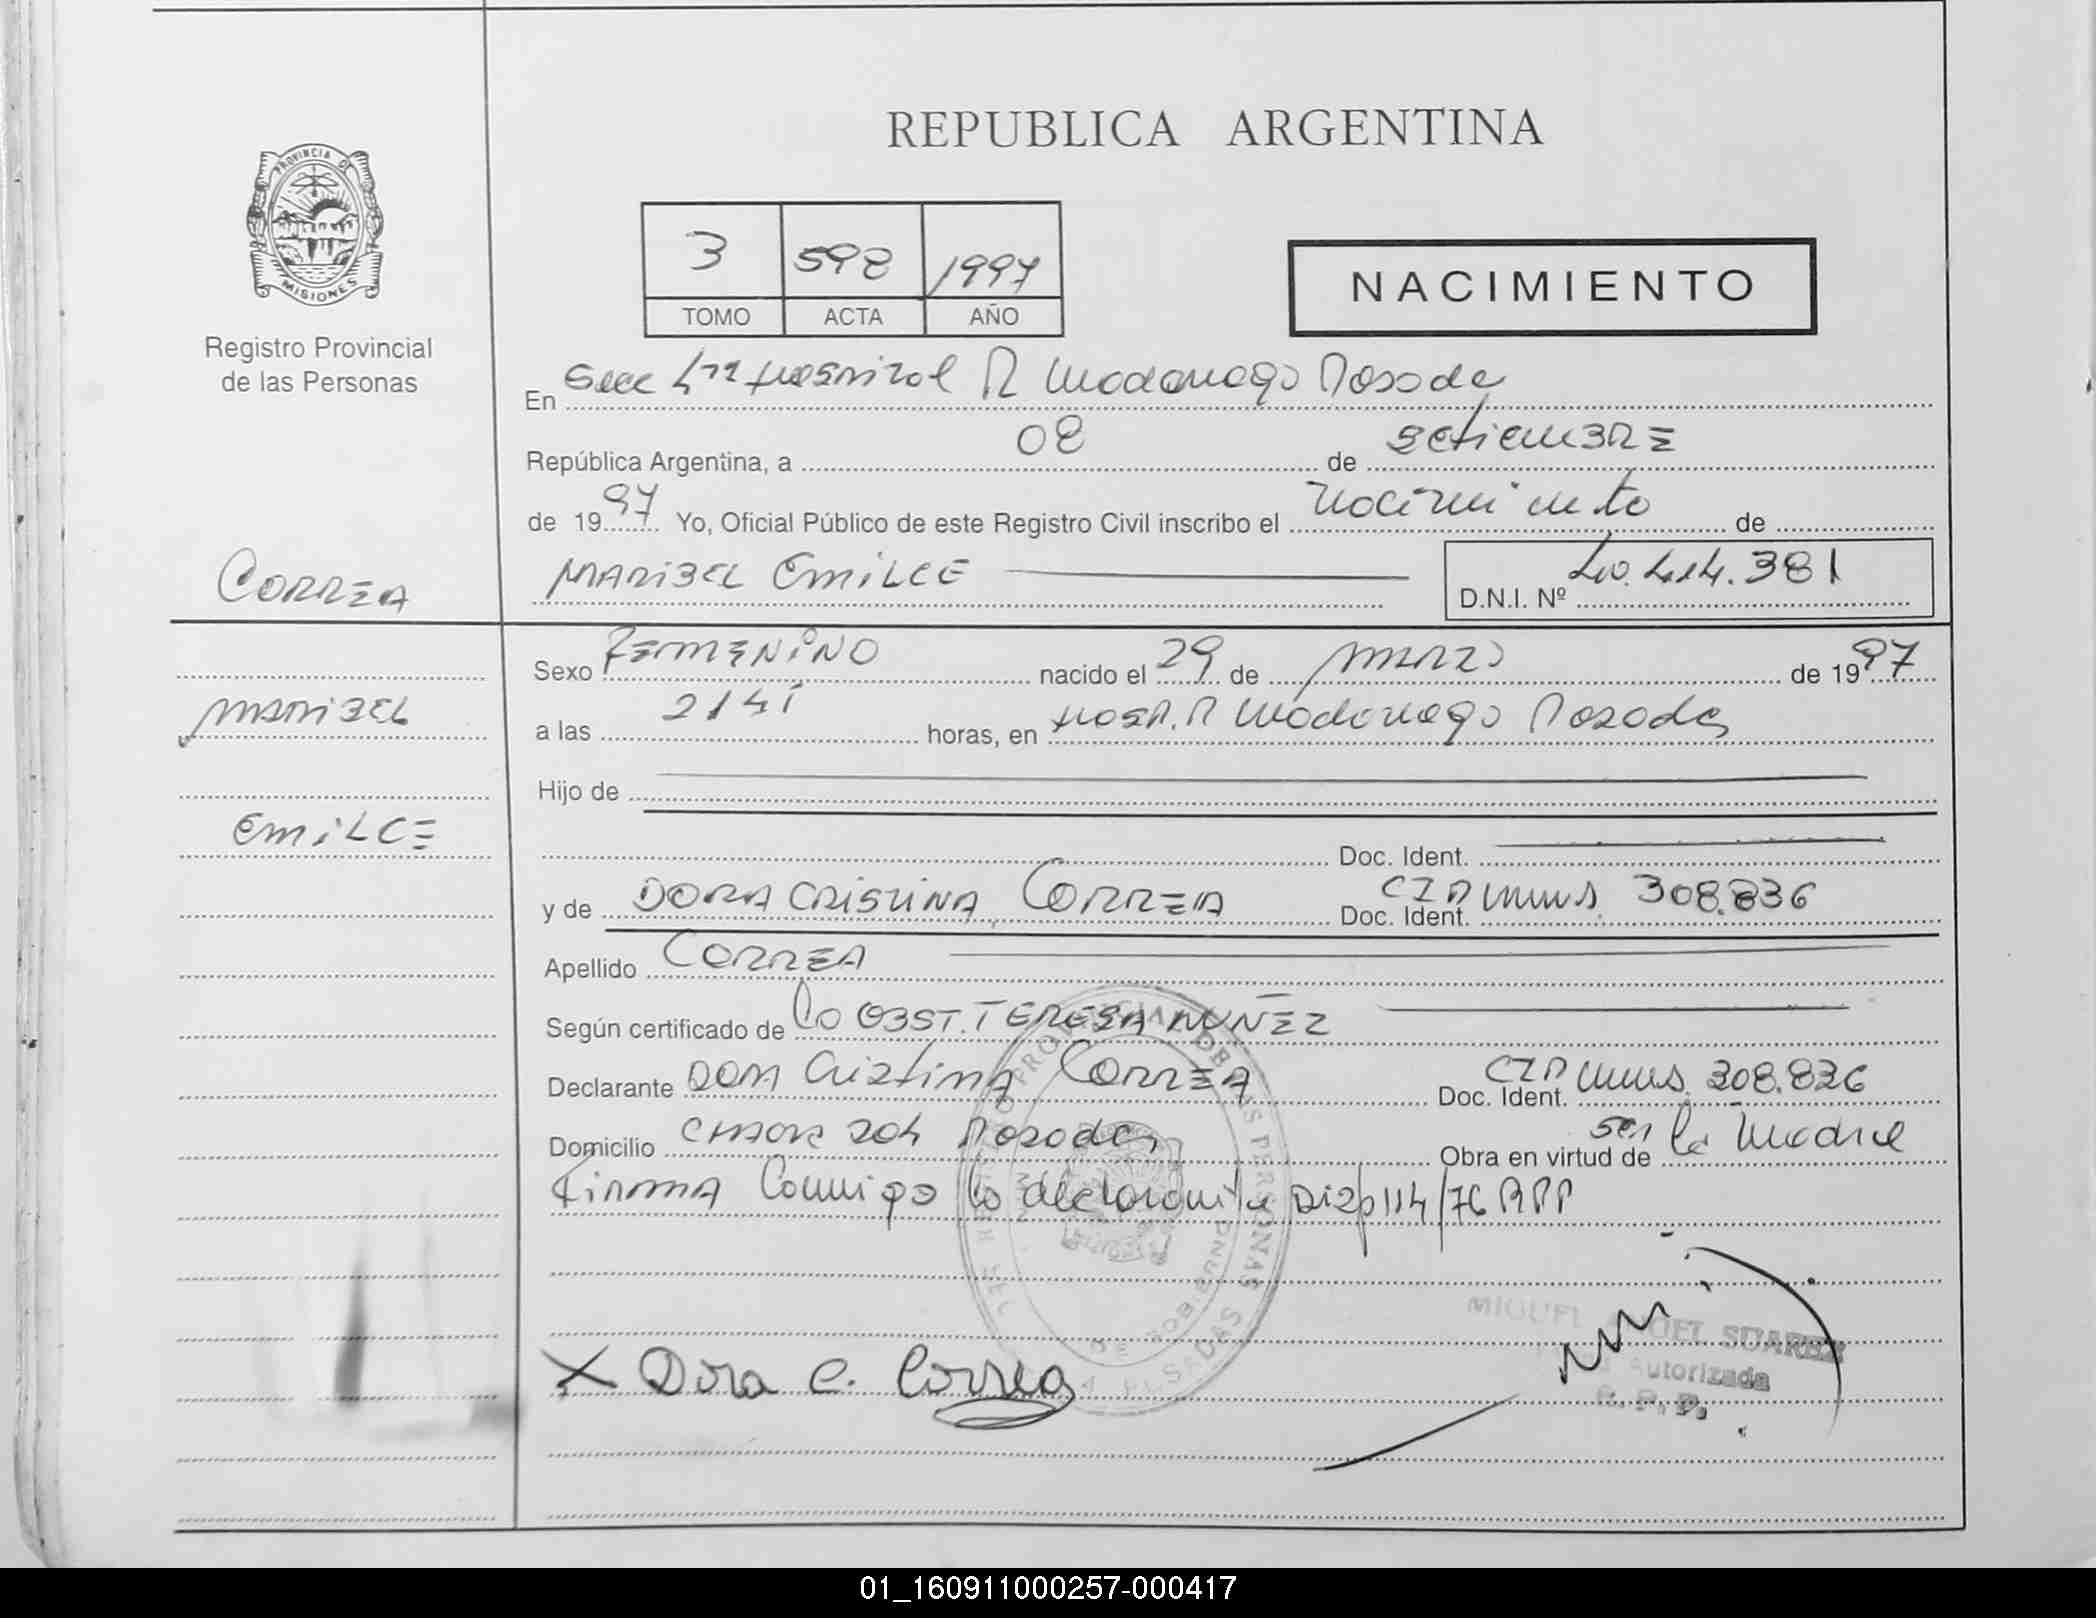 REPUBLICA ARGENTINA
PROVINCIA DE
MISIONES
Registro Provincial
de las Personas
3 598 1997
TOMO ACTA AÑO
NACIMIENTO
En Secc Hospital R Madariaga Posadas
República Argentina, a 08 de setiemBRE
de 1997 Yo, Oficial Público de este Registro Civil inscribo el nacimiento de
CORREA
MARIBEL EMILCE D.N.I. Nº 40.414.381
Sexo FEMENINO nacido el 29 de MARZO de 1997
MARIBEL
a las 2141 horas, en Hosp. R Madariaga Posadas
Hijo de
EMILCE
Doc. Ident.
y de DORA CRISTINA CORREA Doc. Ident. CIP Mnes 308.836
Apellido CORREA
Según certificado de la OBST. TERESA NUÑEZ
Declarante DORA Cristina CORREA Doc. Ident. CIP Mnes 308.836
Domicilio 204 Posadas Obra en virtud de ser la madre
FIRMA Conmigo la declarante Disp 114/76 RPP
X Dora C. Correa
MIGUEL SUAREZ
Autorizada
R. P. P.
01_160911000257-000417